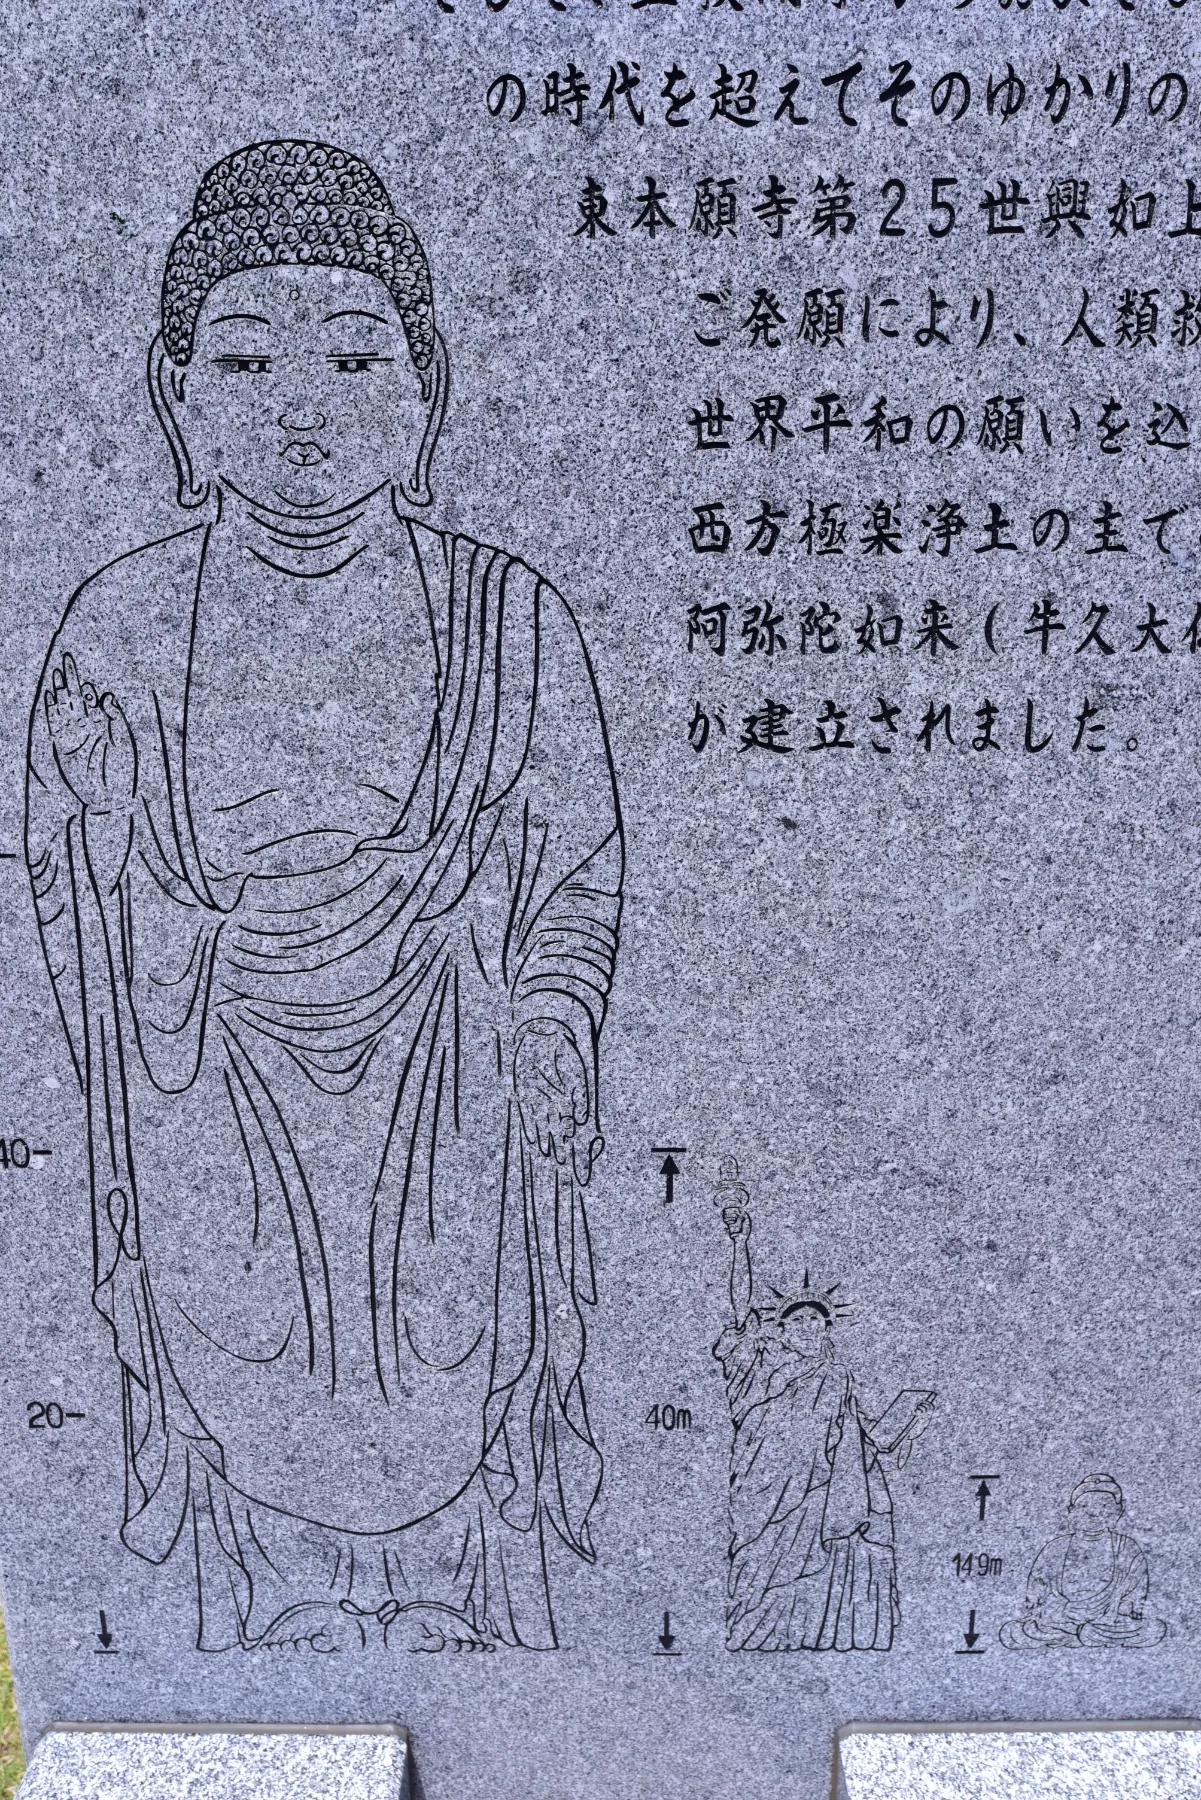 の時代を超えてそのゆかりの
東本願寺第25世興如上
ご発願により、人類救
世界平和の願いを込
西方極楽浄土の主で
阿弥陀如来(牛久大仏
が建立されました。
40-
20-
40m
14.9m